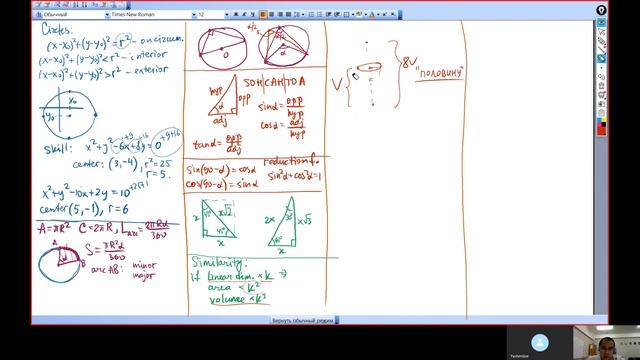 Обычный
Times New Roman
12
Circles:
(x-x₀)²+(y-y₀)²=r² - on circum.
(x-x₀)²+(y-y₀)²<r² - interior
(x-x₀)²+(y-y₀)²>r² - exterior
x₀
y₀
+9 +16
skill: x²+y²-6x+8y=0 +9+16
center: (3,-4), r²=25
r=5.
x²+y²-10x+2y=10
center(5,-1), r=6
A=πR² C=2πR, Larc=2πRα/360
A
B
α
S=πR²α/360
arc AB: minor
major
O
α/2
α/2
α
SOHCAHTOA
hyp
opp
α
adj
sinα=opp/hyp
cosα=adj/hyp
tanα=opp/adj
reduction f.
sin(90-α)=cosα
cos(90-α)=sinα
sin²α+cos²α=1
x
45°
x√2
45°
x
2x
30°
x√3
60°
x
Similarity:
if linear dim. × k ⇒
area × k²
volume × k³
V
8V
"ПОЛОВИНУ"
Вернуть обычный режим